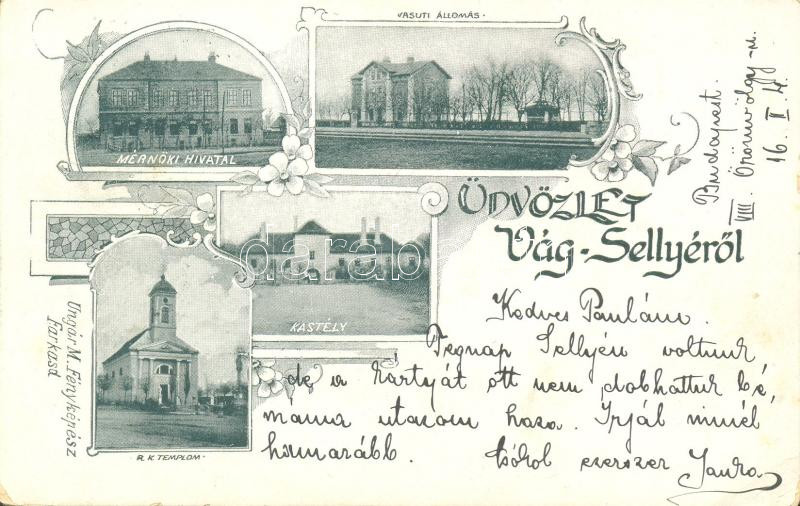 VASUTI ÁLLOMÁS.
MÉRNÖKI HIVATAL
ÜDVÖZLET
Vág-Sellyéről
KASTÉLY
R. K. TEMPLOM.
Ungár M. Fényképész
Farkasd
darab
Budapest.
VIII. Örömvölgy-u.
16. I
Kedves Paulám.
Tegnap Sellyén voltunk
de a kártyát ott nem dobhattuk bé,
mama utazom haza. Irjál minél
hamarább. Csókol ezerszer